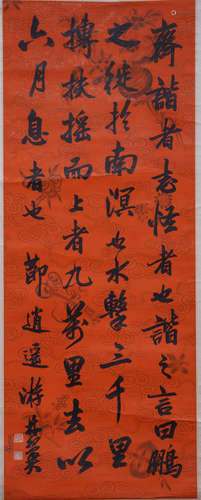 齊諧者志怪者也諧之言曰鵬
之徙於南溟也水擊三千里
摶扶搖而上者九萬里去以
六月息者也 節逍遥游